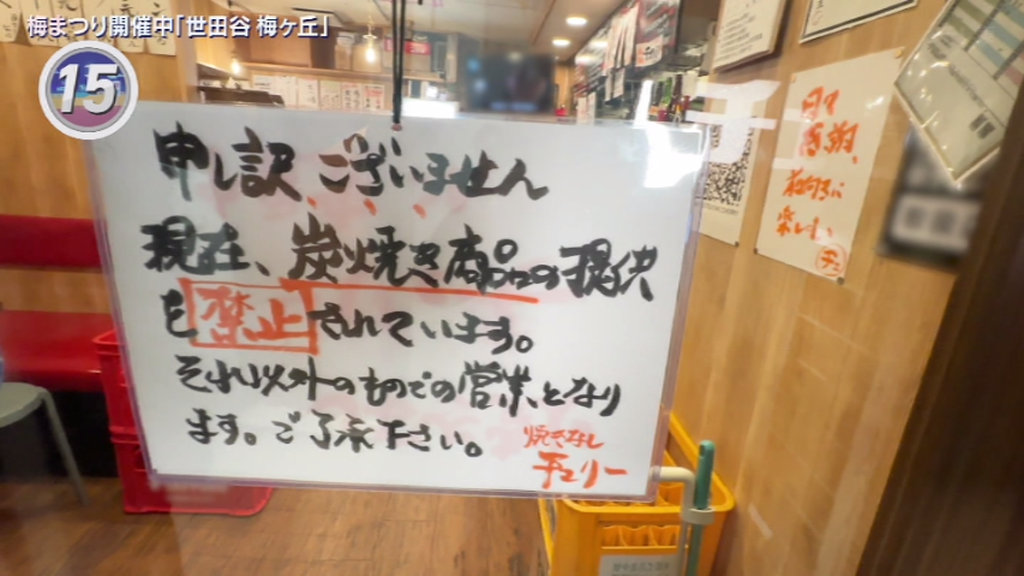 梅まつり開催中「世田谷 梅ヶ丘」
15
申し訳ございません
現在、炭焼き商品の提供
を禁止されています。
それ以外のものでの営業となり
ます。ご了承下さい。
焼きなし
チェリー